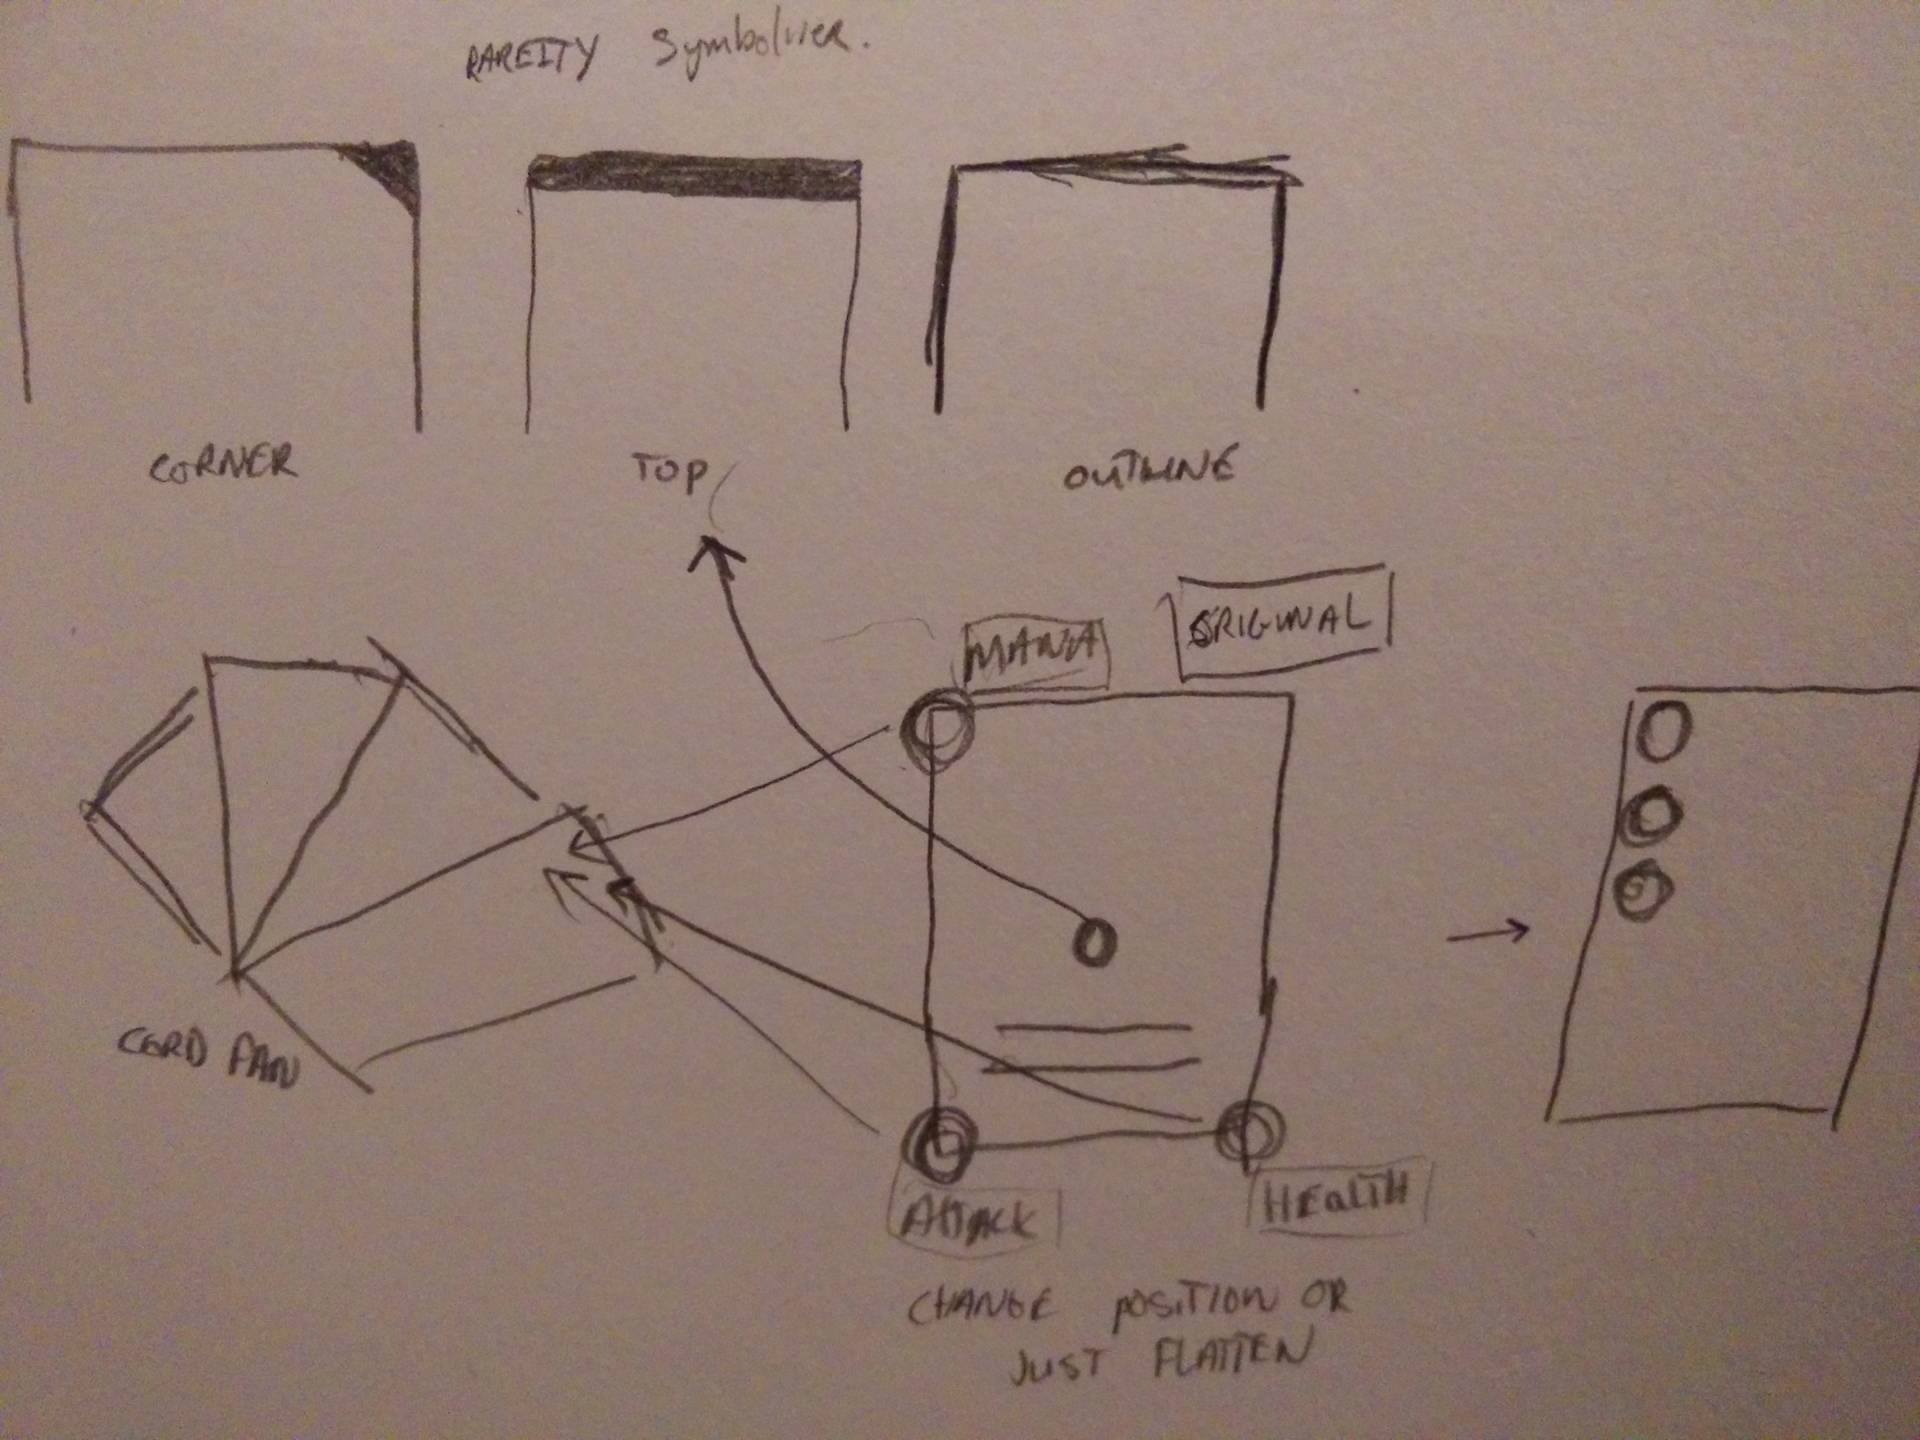 RAREITY
CORNER
TOP
OUTLINE
MANA
ORIGINAL
CARD FAN
ATTACK
HEALTH
CHANGE POSITION OR
JUST FLATTEN